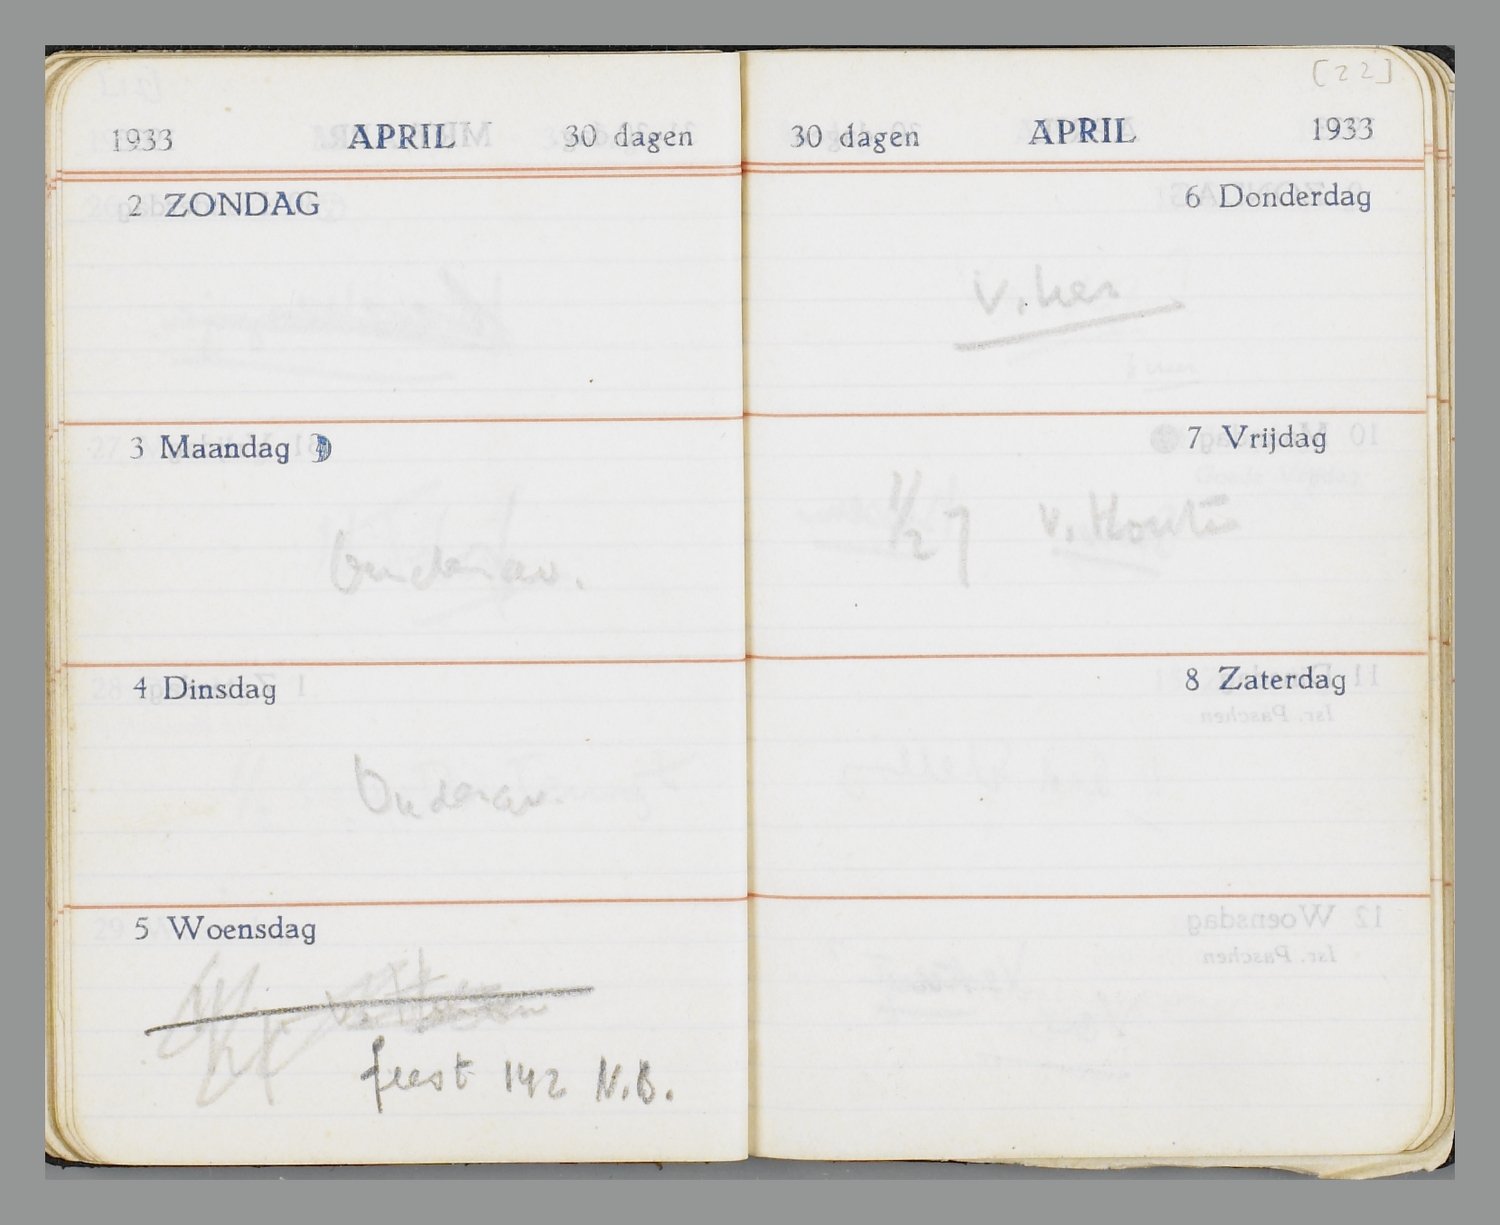 1933 APRIL 30 dagen
2 ZONDAG
3 Maandag
Ouderav.
4 Dinsdag
Ouderav.
5 Woensdag
feest 142 N.B.
[22]
30 dagen APRIL 1933
6 Donderdag
7 Vrijdag
1/2 7 v. Houten
8 Zaterdag